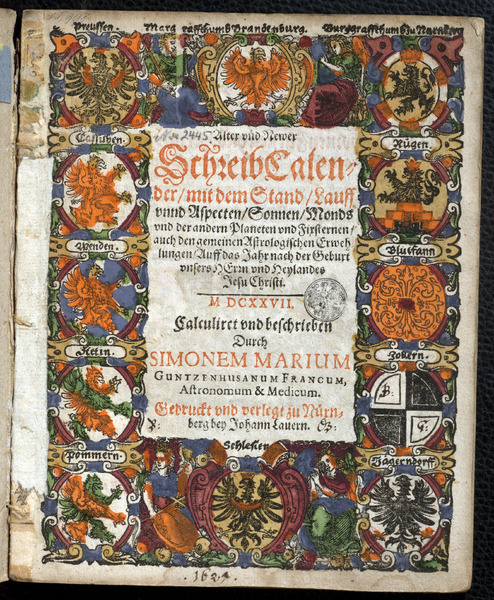 Preussen. Marggraffthumb Brandenburg. Burggraffthumb zu Nürnberg
Cassuben.
Rügen.
Wenden.
Blutfann
Stetin.
Zollern.
B.
G:
Pommern.
Jägerndorff.
Schlesien
No 2445
Alter vnd Newer
SchreibCalen-
der/mit dem Stand/Lauff
vnnd Aspecten/Sonnen/Monds
vnd der andern Planeten vnd Fixsternen/
auch den gemeinen Astrologischen Erweh
lungen/Auff das Jahr nach der Geburt
vnsers HErrn vnd Heylandes
Jesu Christi.
M DCXXVII.
Calculiret vnd beschrieben
Durch
SIMONEM MARIUM
GUNTZENHUSANUM FRANCUM,
Astronomum & Medicum.
Gedruckt vnd verlegt zu Nürn-
berg bey Johann Lauern.